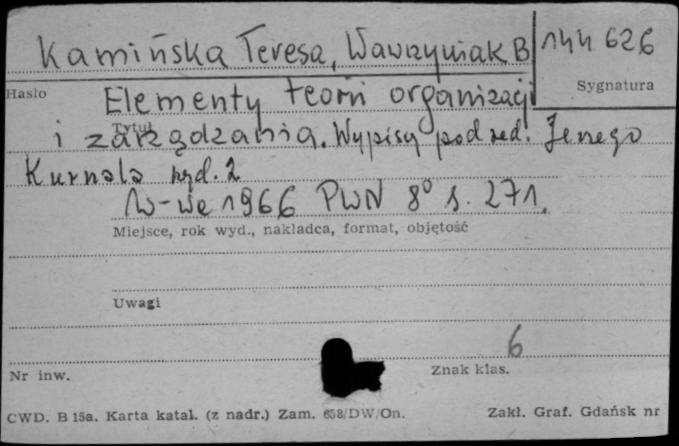 Kamińska Teresa, Wawrzyniak B
144 626
Hasło
Sygnatura
Elementy teorii organizacji
Tytuł
i zarządzania. Wypisy pod red. Jerzego
Kurnala wyd. 2
W-wa 1966 PWN 8° s. 271.
Miejsce, rok wyd., nakładca, format, objętość
Uwagi
6
Nr inw.
Znak klas.
CWD. B 15a. Karta katal. (z nadr.) Zam. 658/DW/On.
Zakł. Graf. Gdańsk nr